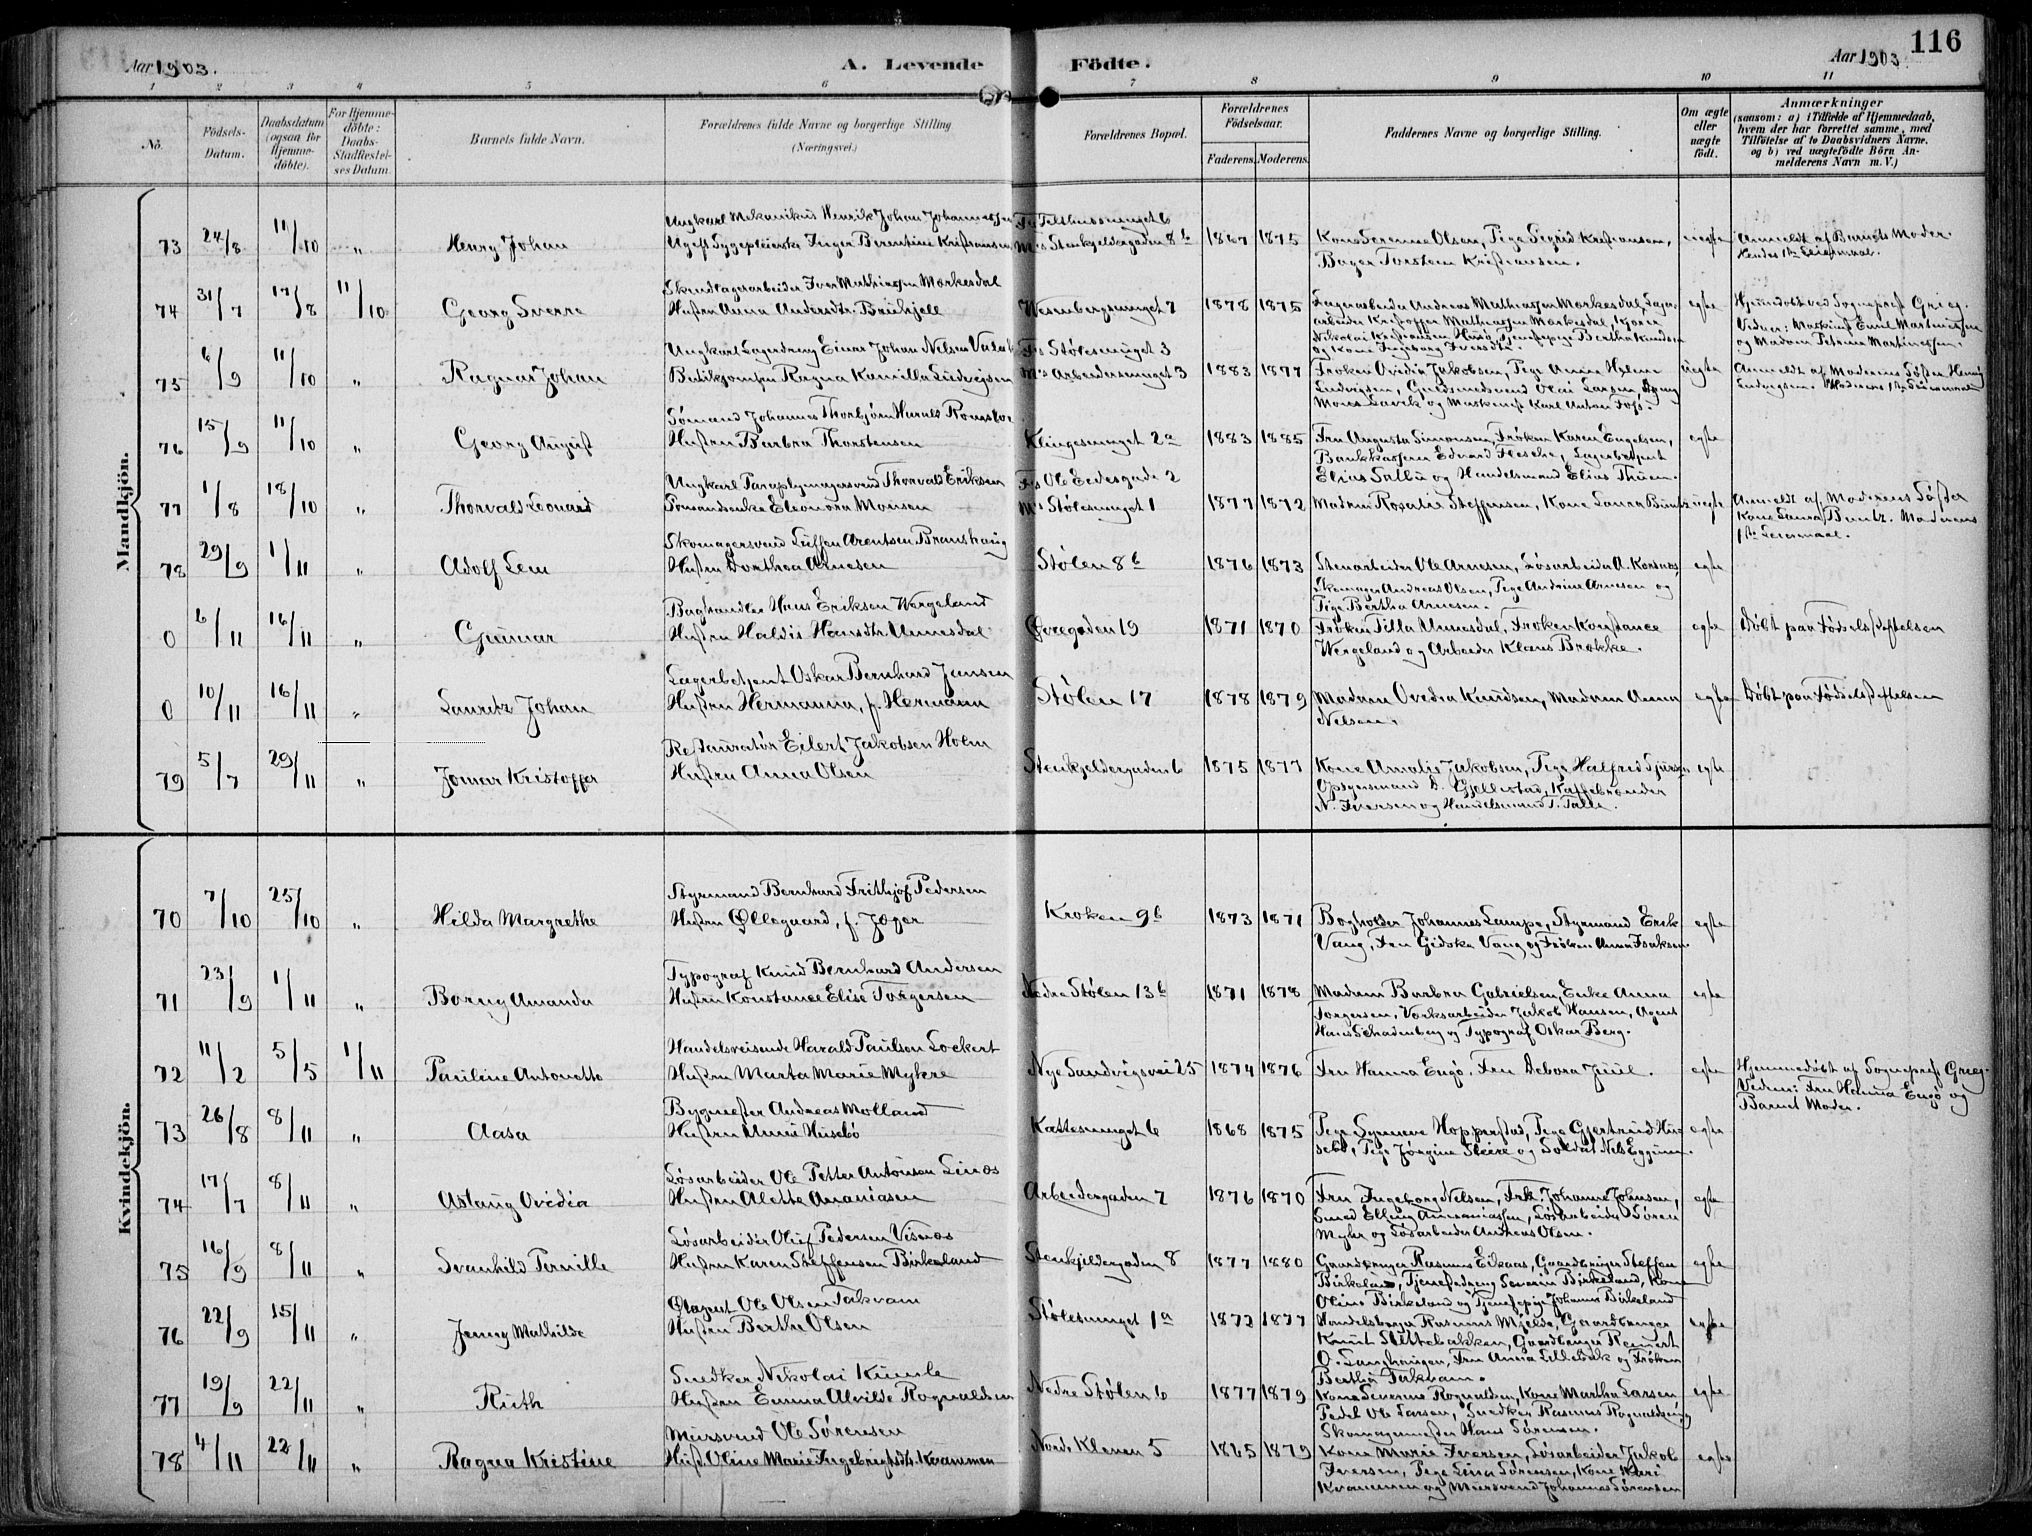 Aar 1903.
A. Levende
Födte.
Aar 1903.
116
1 2 3 4 5 6 7 8 9 10 11
No.
Födsels-Datum.
Daabsdatum (ogsaa for Hjemmedöbte).
For Hjemmedöbte: Daabs-Stadfæstelses Datum.
Barnets fulde Navn.
Forældrenes fulde Navne og borgerlige Stilling (Næringsvei.)
Forældrenes Bopæl.
Forældrenes Födselsaar.
Faderens. Moderens.
Faddernes Navne og borgerlige Stilling.
Om ægte eller uægte födt.
Anmærkninger (saasom: a) i Tilfælde af Hjemmedaab, hvem der har forrettet samme, med Tilföielse af to Daabsvidners Navne, og b) ved uægtefödte Börn Anmelderens Navn m. V.)
Mandkjön.
73 24/8 11/10 " Henry Johan
Ungkarl Mekanikus Henrik Johan Johannessen
Ugift Sygepleierske Inger Berentine Kristiansen
Fs
Ms Stenkjeldergaden 8b
1867 1875
Kone Serenne Olsen, Pige Sigrid Kristiansen,
Bager Torstein Kristiansen.
uegte
Anmeldt af Barnets Moder.
Hendes 1ste Leiermaal.
74 31/7 17/8 11/10 Georg Sverre
Iver Mathiassen Mørkesdal
Hustru Anna Andersdtr.
Wesenbergsmuget 7
1878 1875
Lagerarbeider Andreas Mathiassen Mørkesdal, Lager-
arbeider Kristoffer Mathiassen Mørkesdal, Kjører
Nikolai Kristiansen Husø, Tjenestepige Bertha Knudsen
og Kone Ingeborg Iversdtr.
egte
Hjemdøbt ved Sogneprest Grieg.
Vidner: Maskinist Emil Martinussen
og Madam Petrina Martinussen.
75 6/9 11/10 " Ragnar Johan
Ungkarl Lagerdreng Einar Johan Nelsen
Butikjomfru Ragna Kamilla Ludvigsen
Fs Stølesmuget 3
Ms Arbeidersmuget 3
1883 1877
Frøken Ovidia Jakobsen, Pige Anna Helene
Ludvigsen, Guldsmedsvend Olai Larsen,
Mons Lavik og Maskinist Karl Anton Foss.
uegte
Anmeldt af Moderens Søster Henny
Ludvigsen. Moderens 1ste Leiermaal
76 15/9 11/10 " Georg August
Sømand Johannes Thorbjørn
Hustru Barbra Thorstensen
Klingesmuget 2a
1883 1885
Fru Augusta Simonsen, Frøken Karen Engelsen,
Edvard Flesche, Lagerbetjent
Elias og Handelsmand Elias Thuen.
egte
77 1/8 18/10 " Thorvald Leonard
Ungkarl Paraplymagersvend Thorvald Eriksen
Eleonora Monsen
Fs Ole Eedesgade 2
Ms Stølesmuget 1
1877 1872
Madam Rosalie Steffensen, Kone Laura Buntz
uegte
Anmeldt af Moderens Søster
Kone Laura Buntz. Moderens
1ste Leiermaal.
78 29/9 1/11 " Adolf Lem
Skomagersvend Arentsen
Hustru Dorthea Arnesen
Stølen 8b
1876 1873
Stenarbeider Ole Arnesen, Løsarbeider A.
Skomager Andreas Olsen, Pige Andrine Arnesen og
Pige Bertha Arnesen.
egte
0 6/11 16/11 " Gunnar
Boghandler Hans Eriksen Wergeland
Hustru Haldis Hansdtr. Unnesdal
Øvregaden 19
1871 1870
Frøken Tilla Unnesdal, Frøken Konstance
Wergeland og Arbeider Klaus Brekke.
egte
Døbt paa Fødselsstiftelsen
0 10/11 16/11 " Lauritz Johan
Lagerbetjent Oskar Bernhard Jensen
Hustru Hermanna, f. Hermann
Stølen 17
1878 1879
Madam Ovedia Knudsen, Madam Anna
Nelsen.
egte
Døbt paa Fødselsstiftelsen
79 5/7 29/11 " Jomar Kristoffer
Restauratør Eilert Jakobsen Holm
Hustru Anna Olsen
Stenkjeldergaden 6
1875 1877
Kone Amalie Jakobsen, Pige Halfrid
Opsynsmand D. Gjellestad, Kaffebrænder
N. Iversen og Handelsmand T. Talle.
egte
Kvindekjön.
70 7/10 25/10 " Hilda Margrethe
Styrmand Bernhard Frithjof Pedersen
Hustru Øllegaard, f. Jæger
Kroken 9b
1873 1871
Bogholder Johannes Lampe, Styrmand Erik
Vang, Fru Gidske Vang og Frøken Anna Isaksen.
egte
71 23/9 1/11 " Borny Amanda
Typograf Knud Bernhard Andersen
Hustru Konstance Elise Torgersen
Nedre Stølen 13b
1871 1878
Madam Barbra Gabrielsen, Enke Anna
Torgersen, Værksarbeider Jakob Hansen, Agent
Hans Schadenberg og Typograf Oskar Berg.
egte
72 11/2 5/5 1/11 Pauline Antonette
Handelsreisende Harald Paulson Lockert
Hustru Marta Marie Mykre
Nye Sandvigsvei 25
1874 1876
Fru Hanna Engø, Fru Debora Juul.
egte
Hjemmedøbt af Sogneprest Grieg.
Vidner: Fru Hanna Engø og
Barnet Moder.
73 26/8 8/11 " Aasa
Bygmester Andreas Molland
Hustru Anni Husebø
Kattesmuget 6
1868 1875
Pige Synneve Hopperstad, Pige Gjertrud Hu-
sebø, Pige Jørgine Skeie og Soldat Nels Eggum.
egte
74 17/7 8/11 " Aslaug Ovidia
Løsarbeider Ole Petter Antonson Linos
Hustru Alette Ananiasen
Arbeidergaden 7
1876 1870
Fru Ingeborg Nelsen, Frk. Johanne Johnsen,
Smed Elling Ananiassen, Løsarbeider Søren
Myhr og Løsarbeider Andreas Olsen.
egte
75 16/9 8/11 " Svanhild Pernille
Løsarbeider Oluf Pedersen Visnæs
Hustru Karen Steffensen Birkeland
Stenkjeldergaden 8
1877 1880
Gaardbruger Rasmus Eikaas, Gaardbruger Steffen
Birkeland, Tjenestedreng Severin Birkeland, Kone
Oline Birkeland og Tjenestepige Johanna Birkeland
egte
76 22/9 15/11 " Jenny Mathilde
Ole Olsen Takvam
Hustru Bertha Olsen
Stølesmuget 1a
1872 1877
Handelsbruger Rasmus Mjelde, Gaardbruger
Knut Slettebakken, Gaardbruger Reinert
O. Langhaugen, Fru Anna Lillebak og Frøken
Bertha Takvam.
egte
77 19/9 22/11 " Ruth
Snedker Nikolai Kumle
Hustru Emma Alvilde Rognaldsen
Nedre Stølen 6
1877 1879
Kone Severine Rognaldsen, Kone Martha Larsen
Pedel Ole Larsen, Snedker Rasmus Rognaldsen og
Skomagermester Hans Sørensen.
egte
78 4/11 22/11 " Ragna Kristine
Mursvend Ole Sørensen
Hust. Oline Marie Ingebrigtsdtr. Krammen
Nordre Kleven 5
1865 1879
Kone Marie Iversen, Løsarbeider Jakob
Iversen, Pige Lina Sørensen, Kone Kari
Krammen og Mursvend Johannes Sørensen
egte